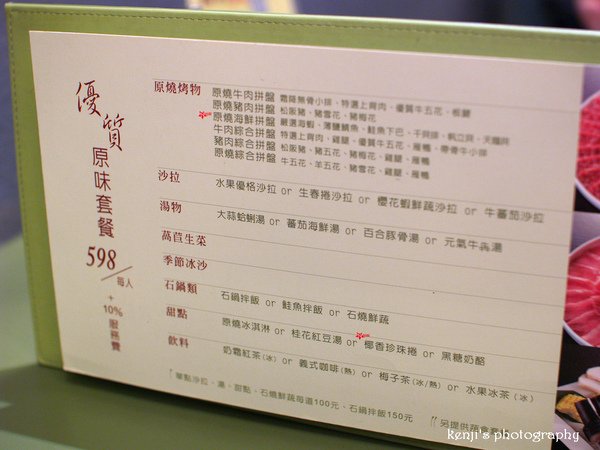 優質
原味套餐
598/每人
+
10%服務費
原燒烤物
原燒牛肉拼盤 霜降無骨小排、特選上肩肉、優質牛五花、板腱
原燒豬肉拼盤 松阪豬、豬雪花、豬梅花
原燒海鮮拼盤 嚴選海蝦、薄鹽鯖魚、鮭魚下巴、干貝
牛肉綜合拼盤 特選上肩肉、雞腿、優質牛五花、雁鴨、帶骨牛小排
豬肉綜合拼盤 松阪豬、豬五花、豬梅花、雞腿、雁鴨
原燒綜合拼盤 牛五花、羊五花、豬雪花、雞腿、雁鴨
沙拉 水果優格沙拉 or 生春捲沙拉 or 櫻花蝦鮮蔬沙拉 or 牛蕃茄沙拉
湯物 大蒜蛤蜊湯 or 蕃茄海鮮湯 or 百合豚骨湯 or 元氣牛犇湯
萵苣生菜
季節冰沙
石鍋類 石鍋拌飯 or 鮭魚拌飯 or 石燒鮮蔬
甜點 原燒冰淇淋 or 桂花紅豆湯 or 椰香珍珠捲 or 黑糖奶酪
飲料 奶霜紅茶(冰) or 義式咖啡(熱) or 梅子茶(冰/熱) or 水果冰茶(冰)
單點沙拉、湯、甜點、石燒鮮蔬每道100元、石鍋拌飯150元
另提供蔬食套餐
kenji's photography